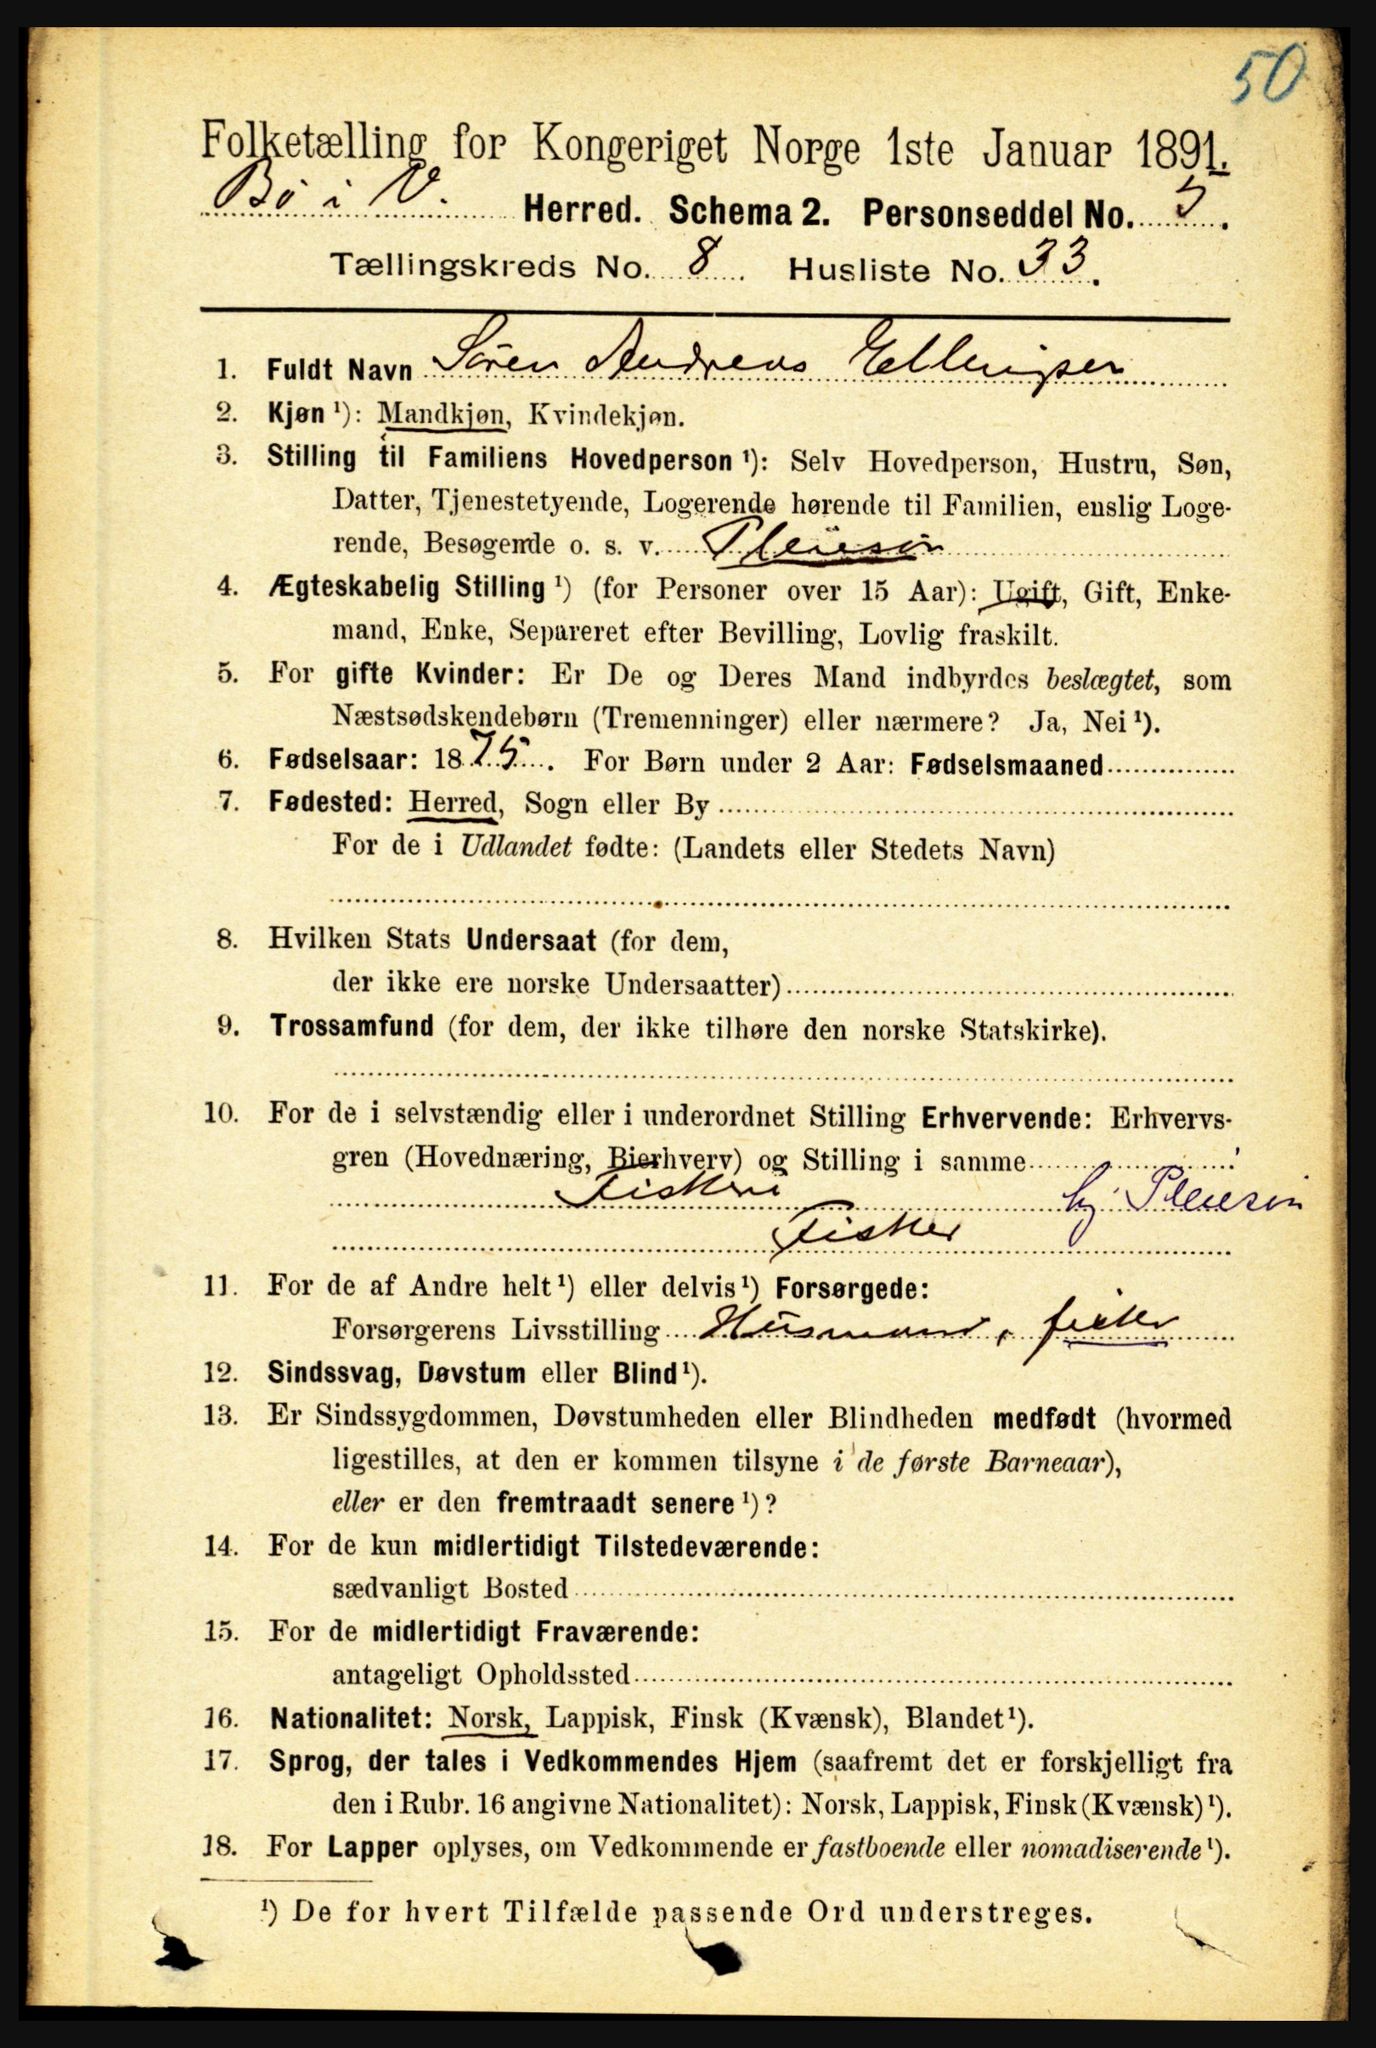 50
Folketælling for Kongeriget Norge 1ste Januar 1891.
Bö i V. Herred. Schema 2. Personseddel No. 5.
Tællingskreds No. 8. Husliste No. 33.
1. Fuldt Navn Sören Andreas Ellingsen
2. Kjøn ¹): Mandkjøn, Kvindekjøn.
3. Stilling til Familiens Hovedperson ¹): Selv Hovedperson, Hustru, Søn,
Datter, Tjenestetyende, Logerende hørende til Familien, enslig Loge-
rende, Besøgende o. s. v. Pleiesön
4. Ægteskabelig Stilling ¹) (for Personer over 15 Aar): Ugift, Gift, Enke-
mand, Enke, Separeret efter Bevilling, Lovlig fraskilt.
5. For gifte Kvinder: Er De og Deres Mand indbyrdes beslægtet, som
Næstsødskendebørn (Tremenninger) eller nærmere? Ja, Nei ¹).
6. Fødselsaar: 1875. For Børn under 2 Aar: Fødselsmaaned
7. Fødested: Herred, Sogn eller By
For de i Udlandet fødte: (Landets eller Stedets Navn)
8. Hvilken Stats Undersaat (for dem,
der ikke ere norske Undersaatter)
9. Trossamfund (for dem, der ikke tilhøre den norske Statskirke).
10. For de i selvstændig eller i underordnet Stilling Erhvervende: Erhvervs-
gren (Hovednæring, Bierhverv) og Stilling i samme
Fiskeri hj Pleiesön
Fisker
11. For de af Andre helt ¹) eller delvis ¹) Forsørgede:
Forsørgerens Livsstilling Husmand, fisker
12. Sindssvag, Døvstum eller Blind ¹).
13. Er Sindssygdommen, Døvstumheden eller Blindheden medfødt (hvormed
ligestilles, at den er kommen tilsyne i de første Barneaar),
eller er den fremtraadt senere ¹)?
14. For de kun midlertidigt Tilstedeværende:
sædvanligt Bosted
15. For de midlertidigt Fraværende:
antageligt Opholdssted
16. Nationalitet: Norsk, Lappisk, Finsk (Kvænsk), Blandet ¹).
17. Sprog, der tales i Vedkommendes Hjem (saafremt det er forskjelligt fra
den i Rubr. 16 angivne Nationalitet): Norsk, Lappisk, Finsk (Kvænsk) ¹).
18. For Lapper oplyses, om Vedkommende er fastboende eller nomadiserende ¹).
¹) De for hvert Tilfælde passende Ord understreges.